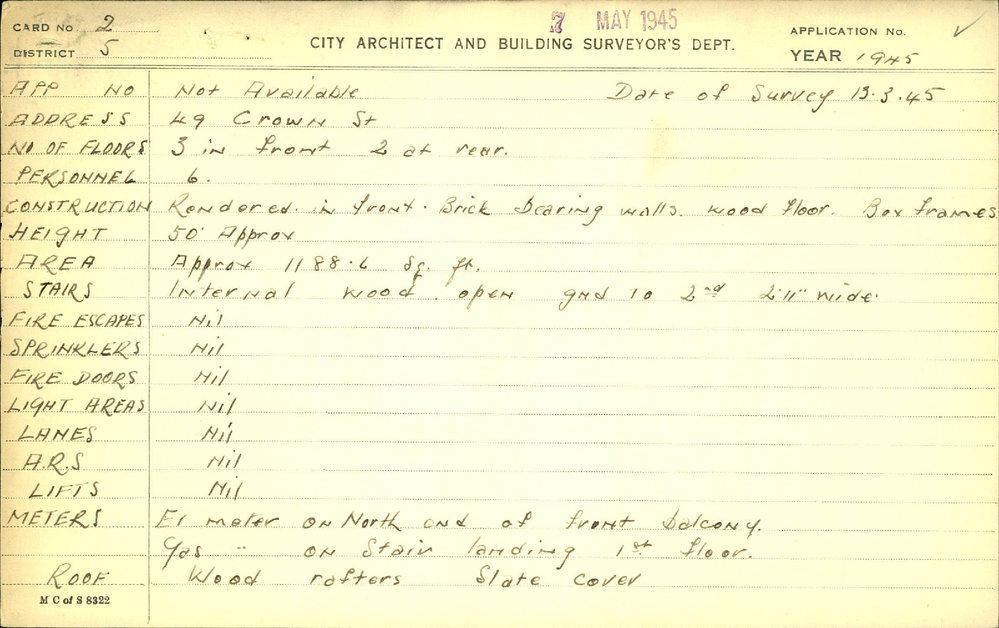 CARD No 2
7 MAY 1945
APPLICATION No. ✓
DISTRICT 5
CITY ARCHITECT AND BUILDING SURVEYOR'S DEPT.
YEAR 1945
APP NO Not Available Date of Survey 13.3.45
ADDRESS 49 Crown St
NO OF FLOORS 3 in front 2 at rear.
PERSONNEL 6.
CONSTRUCTION Rendered in front. Brick bearing walls. wood floor. Box frames
HEIGHT 50' Approx
AREA Approx 1188.6 sq. ft.
STAIRS Internal wood. open gnd to 2nd 2'11" wide.
FIRE ESCAPES Nil
SPRINKLERS Nil
FIRE DOORS Nil
LIGHT AREAS Nil
LANES Nil
A.R.S Nil
LIFTS Nil
METERS El meter on North end of front balcony.
Gas " on Stair landing 1st floor.
ROOF Wood rafters Slate cover
M C of S 8322